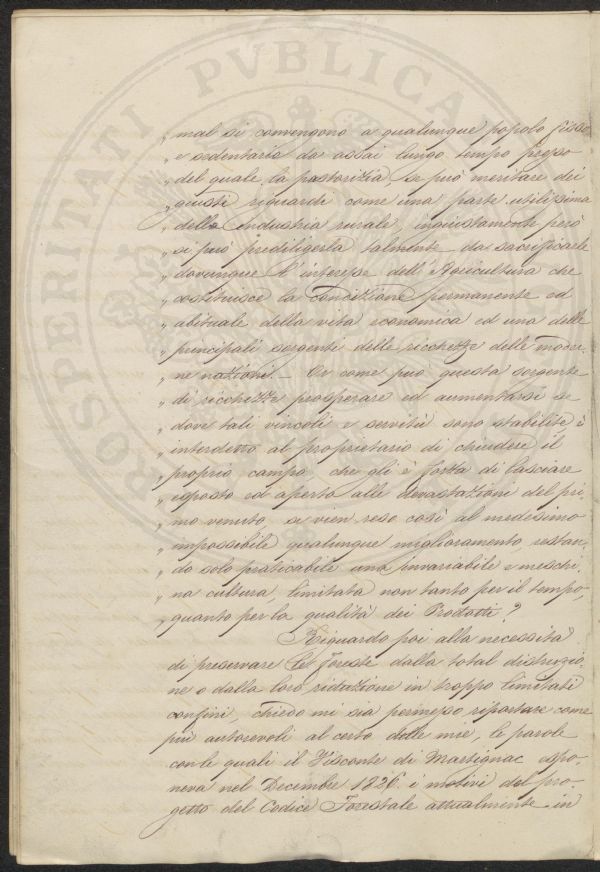 „ mal si convengono a qualunque popolo fisso
„ e sedentario da assai lungo tempo presso
„ del quale la pastorizia, se può meritare dei
„ giusti riguardi come una parte utilissima
„ della industria rurale, ingiustamente però
„ si può prediligerla talmente da sacrificarle
„ dovunque l'interesse dell'Agricultura che
„ costituisce la condizione permanente ed
„ abituale della vita economica ed una delle
„ principali sorgenti delle ricchezze delle moder-
„ ne nazioni_ Or come può questa sorgente
„ di ricchezze prosperare ed aumentarsi se
„ dove tali vincoli e servitù sono stabilite è
„ interdetto al proprietario di chiudere il
„ proprio campo che gli è forza di lasciare
„ esposto ed aperto alle devastazioni del pri-
„ mo venuto, se vien reso così al medesimo
„ impossibile qualunque miglioramento restan-
„ do solo praticabile una invariabile e meschi-
„ na cultura, limitata non tanto per il tempo,
„ quanto per la qualità dei Prodotti?
Riguardo poi alla necessità
di preservare le foreste dalla total distruzio-
ne o dalla loro riduzione in troppo limitati
confini, chiedo mi sia permesso riportare come
più autorevoli al certo delle mie, le parole
con le quali il Visconte di Martignac espo-
neva nel Decembre 1826 i motivi del pro-
getto del Codice Forestale attualmente in
PROSPERITATI PVBLICA